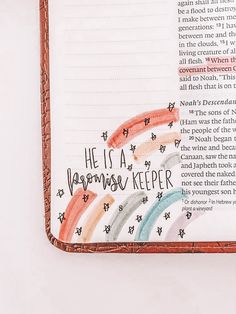 again shall all
be a flood to destroy
I make between me
generations: 13 I have
me and the
in the clouds, 15 I w
living creature of al
all flesh. 16 When th
covenant between G
said to Noah, "This
all flesh that is on t
Noah's Descenda
18 The sons of N
(Ham was the fathe
the people of the w
20 Noah began
the wine and beca
Canaan, saw the na
and Japheth took a
covered the naked
not see their fathe
his youngest son h
Or dishonor in Hebrew
plant a vineyard
HE IS A
promise KEEPER